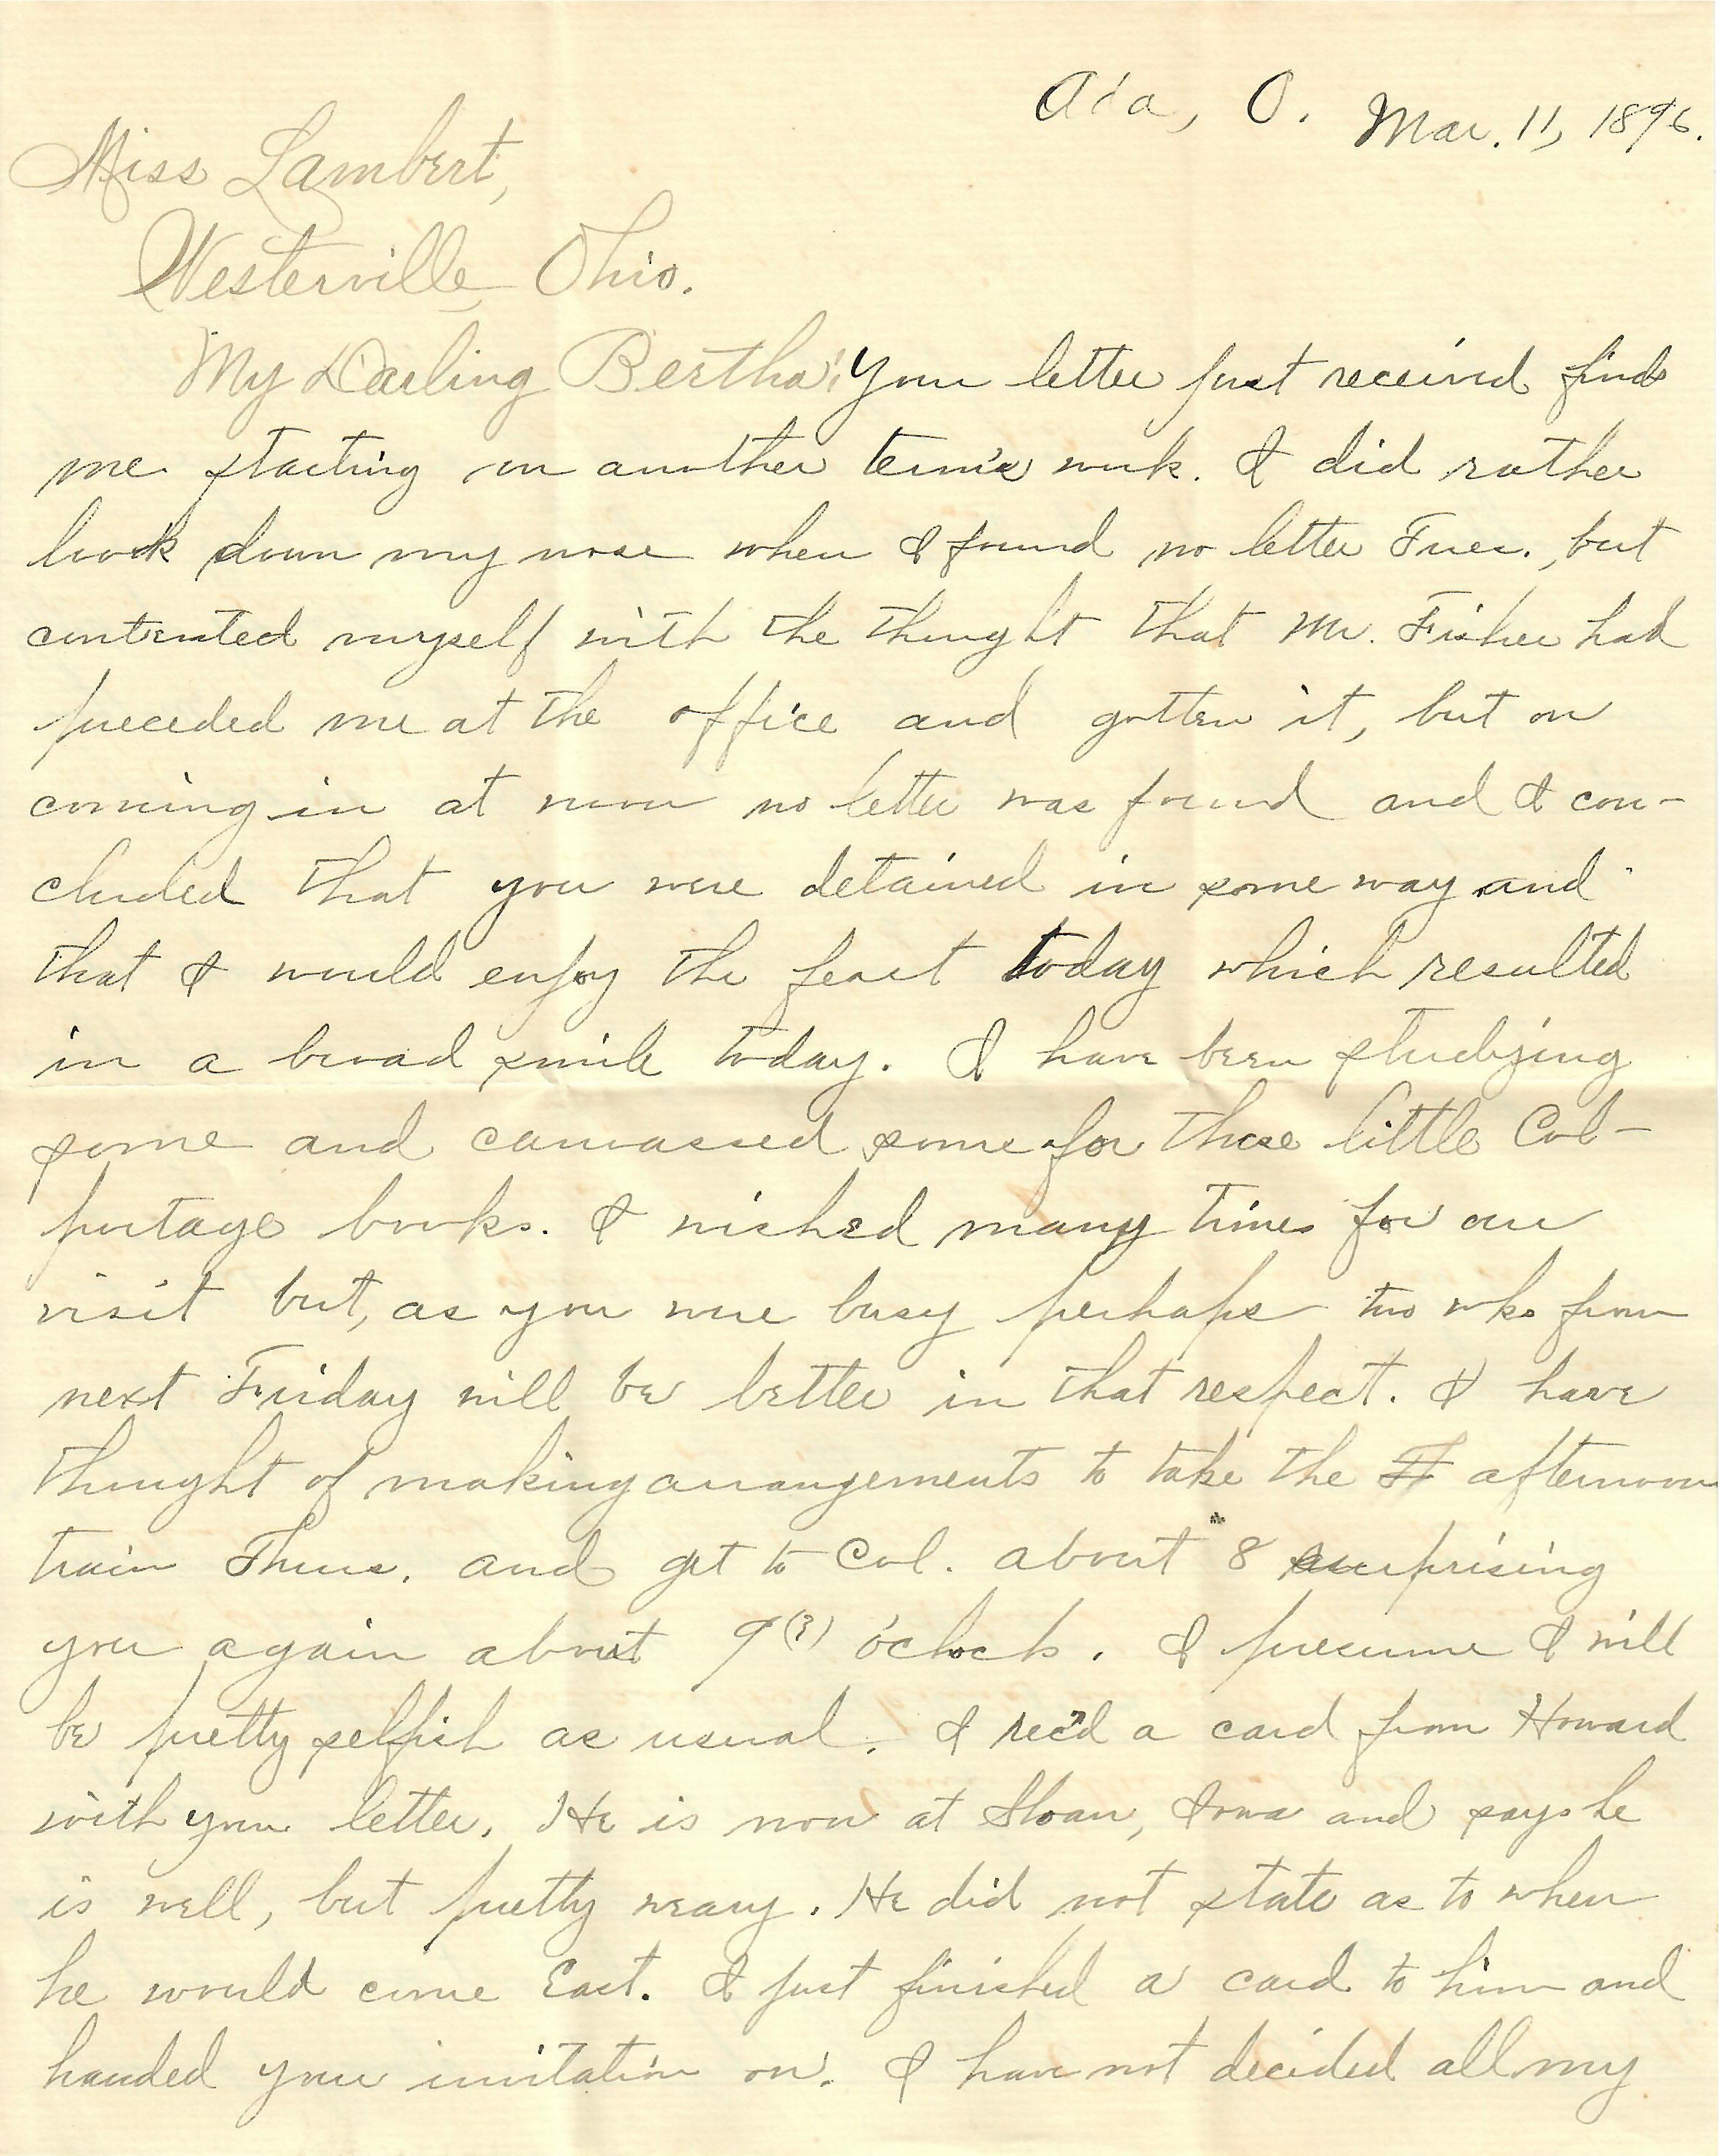 Ada, O. Mar. 11, 1896.
Miss Lambert,
Westerville, Ohio.
My Darling Bertha: Your letter just received finds
me starting on another term's work. I did rather
look down my nose when I found no letter Tues., but
contented myself with the thought that Mr. Fisher had
preceded me at the office and gotten it, but on
coming in at noon no letter was found and I con-
cluded that you were detained in some way and
that I would enjoy the feast today which resulted
in a broad smile today. I have been studying
some and canvassed some for those little Col-
portage books. I wished many times for our
visit but, as you were busy perhaps two wks from
next Friday will be better in that respect. I have
thought of making arrangements to take the afternoon
train Thurs. and get to Col. about 8 surprising
you again about 9(?) o'clock. I presume I will
be pretty selfish as usual. I rec'd a card from Howard
with your letter. He is now at Sloan, Iowa and says he
is well, but pretty weary. He did not state as to when
he would come East. I just finished a card to him and
handed your invitation on. I have not decided all my